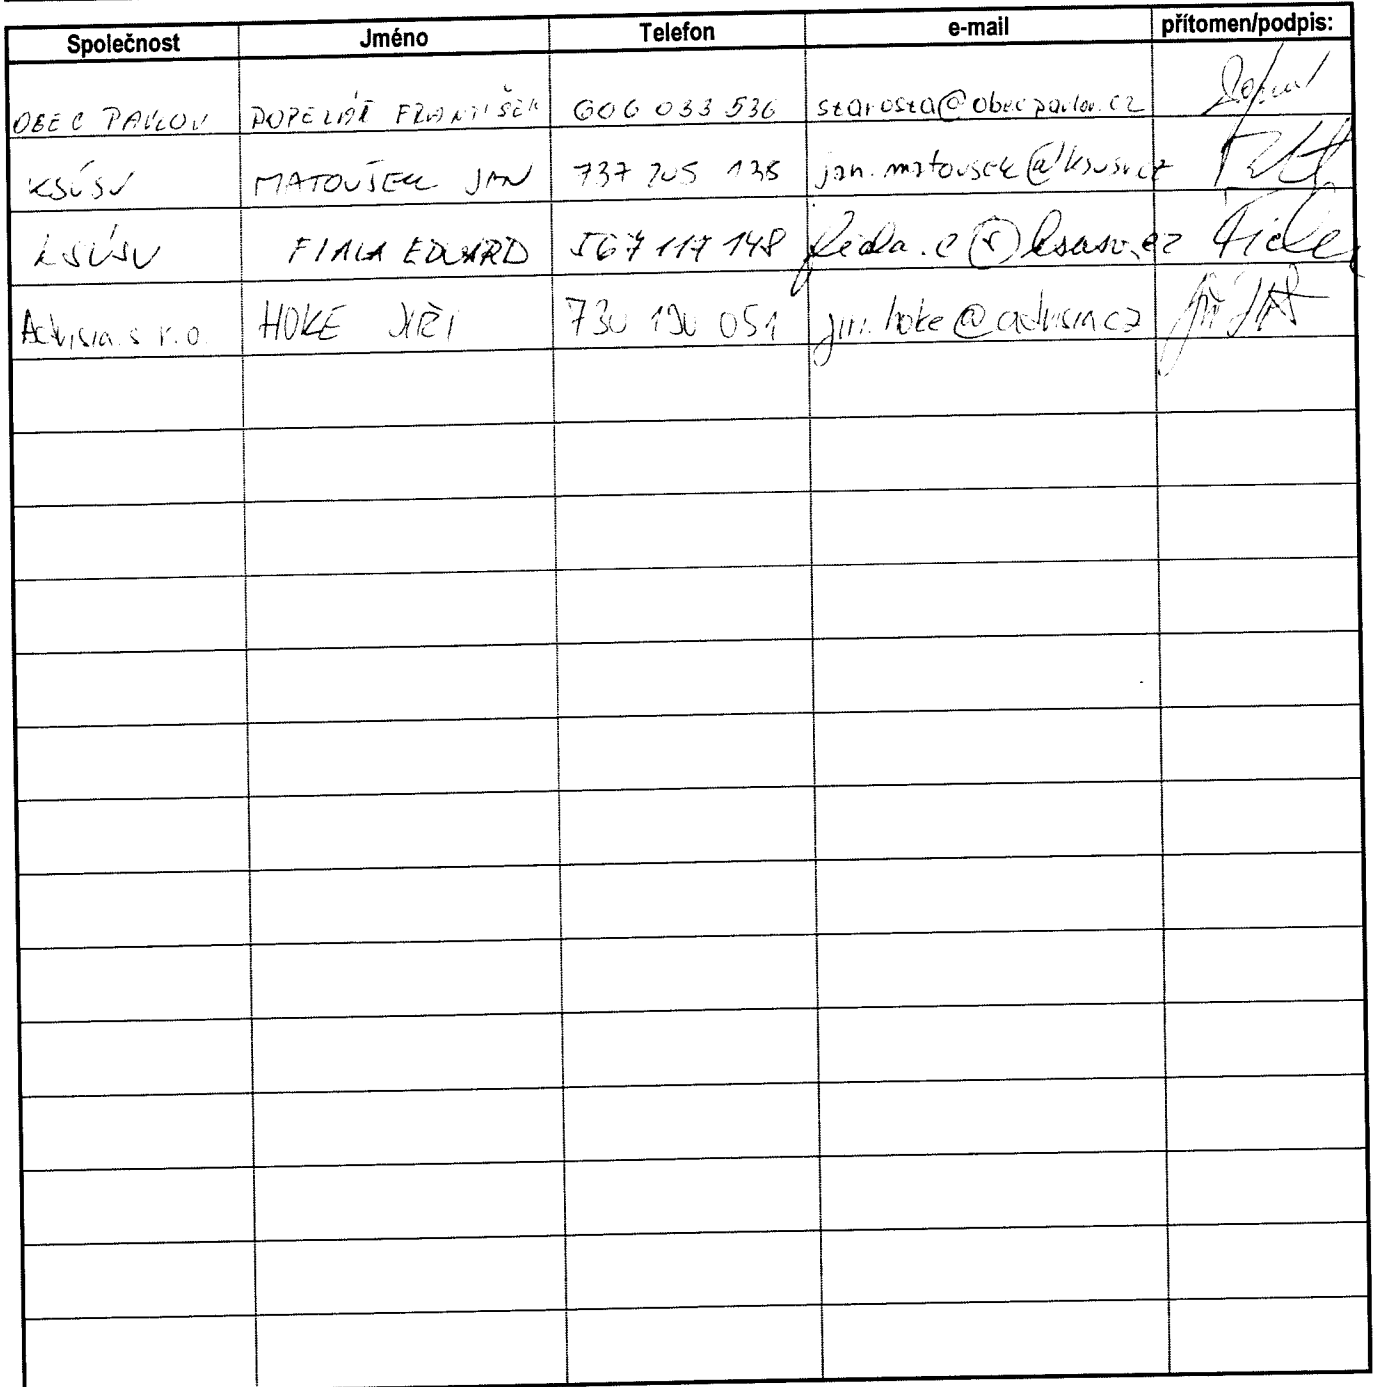 Společnost Jméno Telefon e-mail přítomen/podpis:
OBEC PAVLOV POPELÁŘ FRANTIŠEK 606 033 536 starosta@obecpavlov.cz
KSÚSV MATOUŠEK JAN 737 205 138 jan.matousek@ksusv.cz
KSÚSV FIALA EDUARD 567 117 148 fiala.e@ksusv.cz
Advisia s r.o. HOKE JIŘI 730 190 051 jiri.hoke@advisia.cz